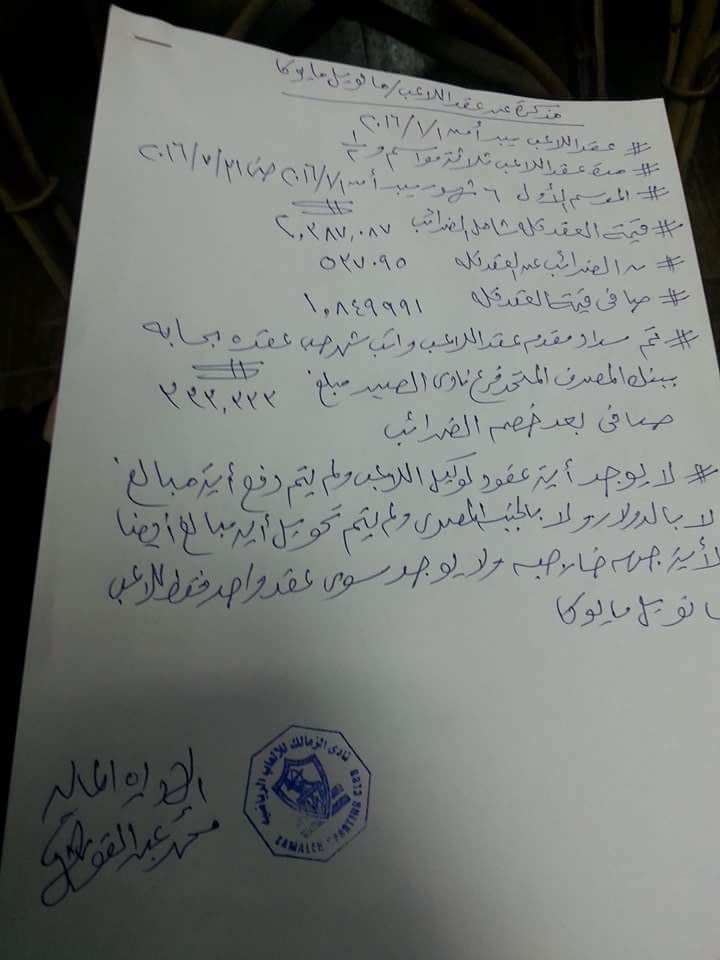 مذكرة عن عقد اللاعب/مانويل مايوكا
# عقد اللاعب يبدأ من ٢٠١٦/١/١
# مدة عقد اللاعب ثلاثة مواسم و ١/٢
# الموسم الأول ٦ شهور يبدأ من ٢٠١٦/١/١ حتى ٢٠١٦/٧/٣١
# قيمة العقد كله شامل الضرائب ٢,٣٨٧,٠٨٧
# الضرائب عن العقد كله ٥٣٧٠٩٥
# صافى قيمة العقد كله ١,٨٤٩٩٩١
# تم سداد مقدم عقد اللاعب وراتب شهر من عقده بحسابه
ببنك المصرف المتحد فرع نادى الصيد مبلغ ٣٣٣,٣٣٣
صافى بعد خصم الضرائب
# لا يوجد أية عقود لوكيل اللاعب ولم يتم دفع أية مبالغ
لا بالدولار ولا بالجنيه المصرى ولم يتم تحويل أية مبالغ أيضا
لأية جهه خارجيه ولا يوجد سوى عقد واحد فقط للاعب
مانويل مايوكا
نادى الزمالك للألعاب الرياضية
ZAMALEK SPORTING CLUB
الإداره المالية
محمد عبد